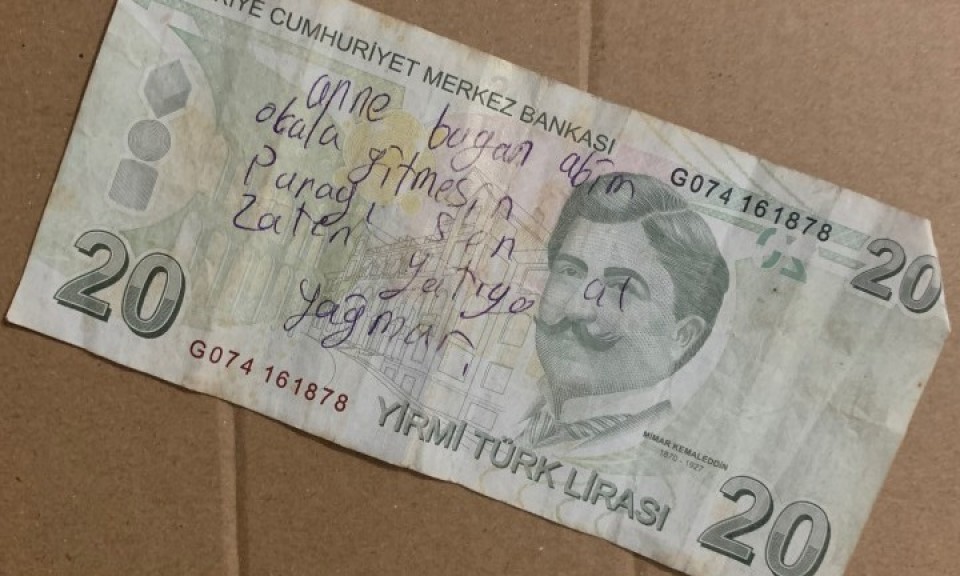 RKİYE CUMHURİYET MERKEZ BANKASI
anne bugün abim
okula gitmesin
Parayı sen
Zaten yatıyo at
Yağmur
G074 161878
20
20
G074 161878
YİRMİ TÜRK LİRASI
MİMAR KEMALEDDİN
1870 - 1927
20